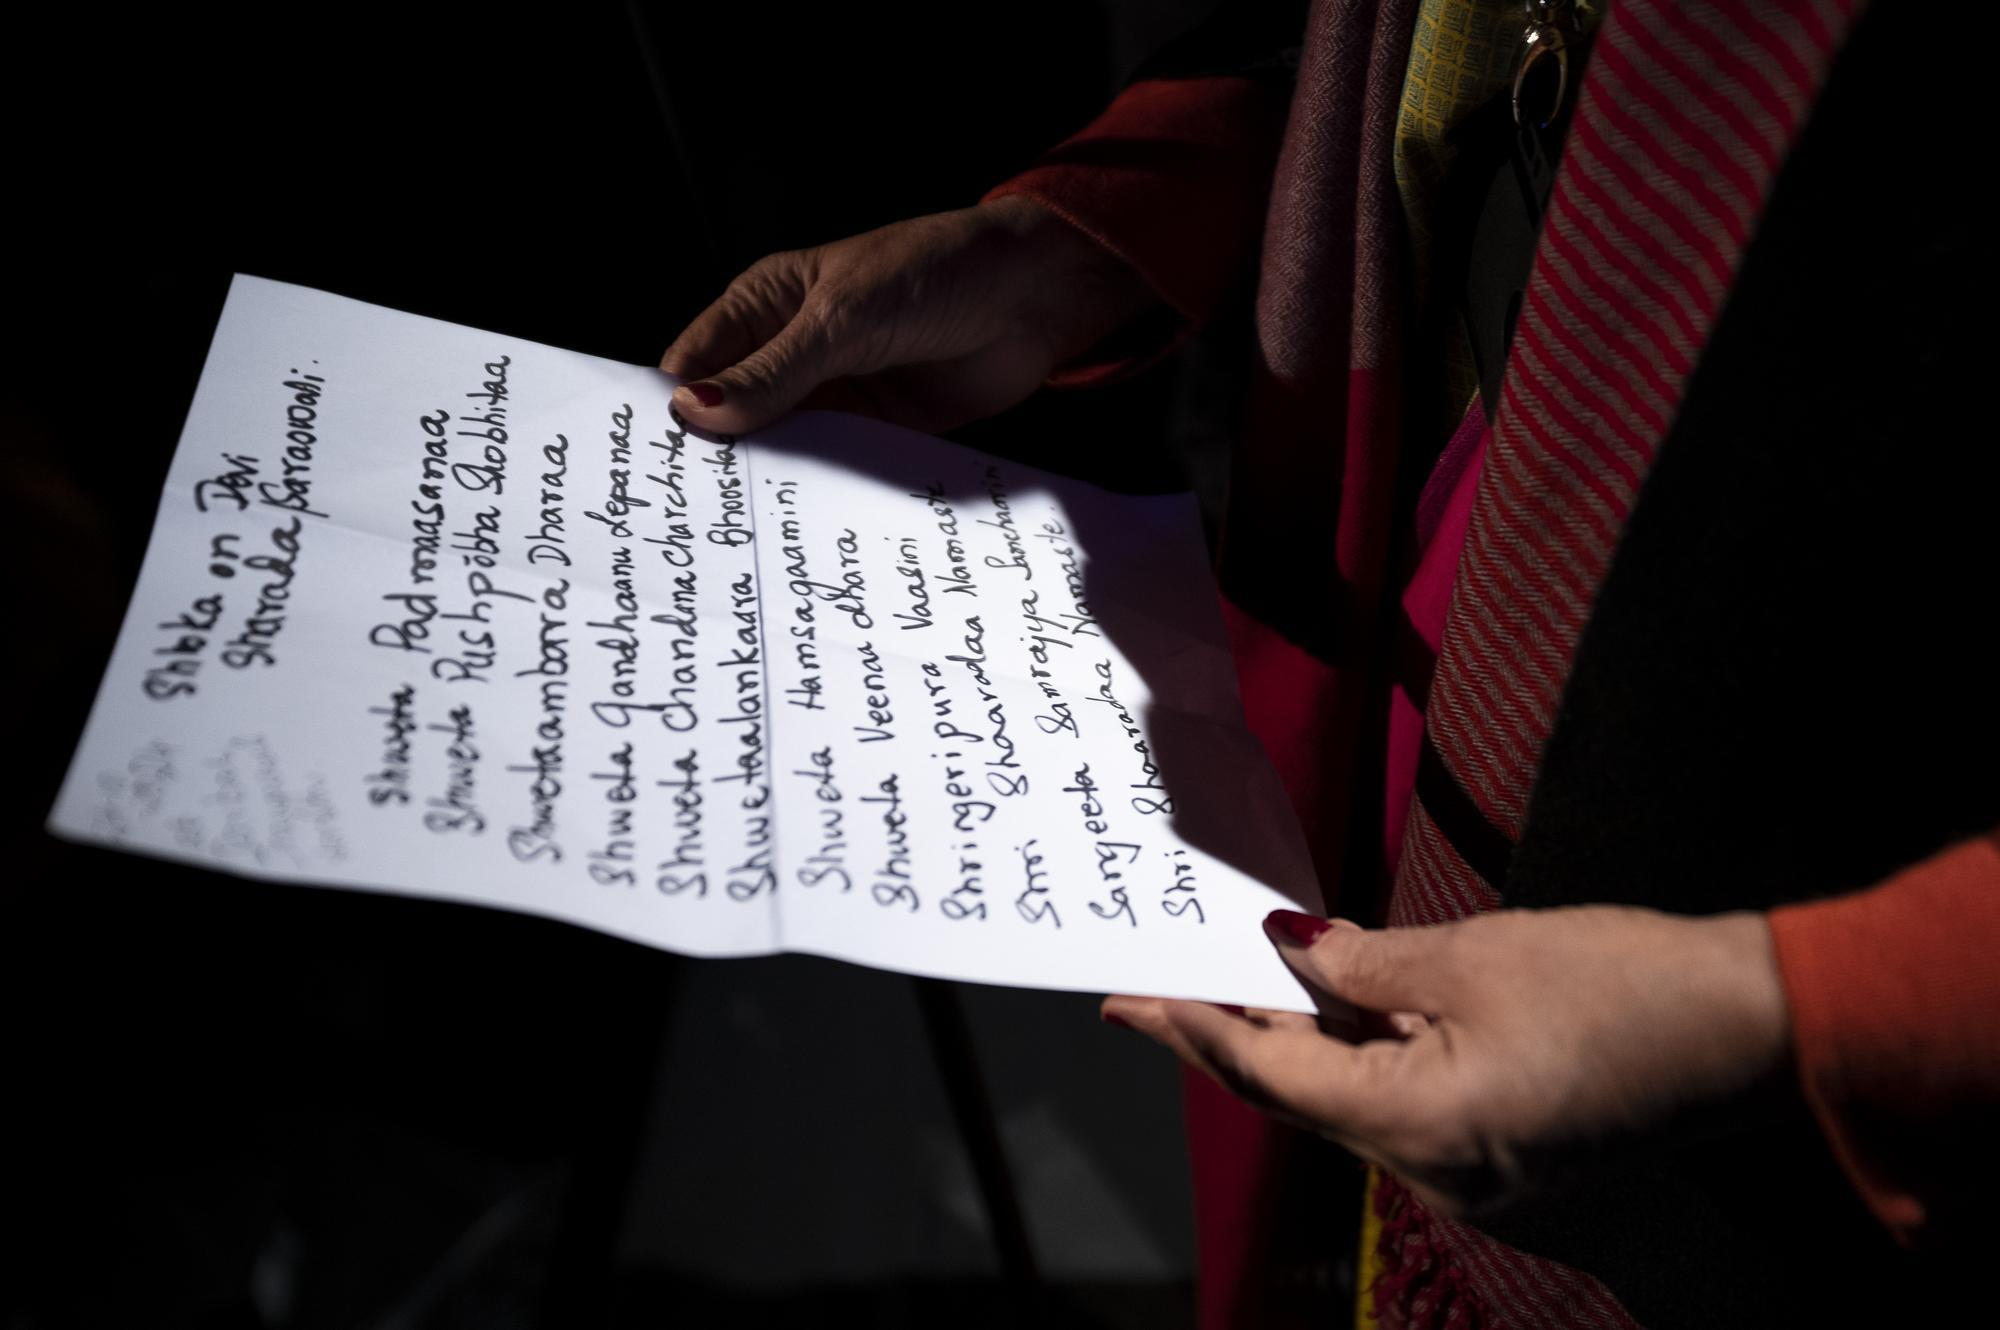 Shloka on Devi
Sharada Saraswati.
Shweta Padmasanaa
Shweta Pushpobha Shobhitaa
Shwetaambara Dharaa
Shweta Gandhaanulepanaa
Shweta Chandana Charchitaa
Shwetaalankaara Bhoosita
Shweta Hamsagaamini
Shweta Veenaa dhara
Shringeripura Vaasini
Shri Shaaradaa Namaste
Sangeeta Samrajya Sanchaarini
Shri Shaaradaa Namaste.